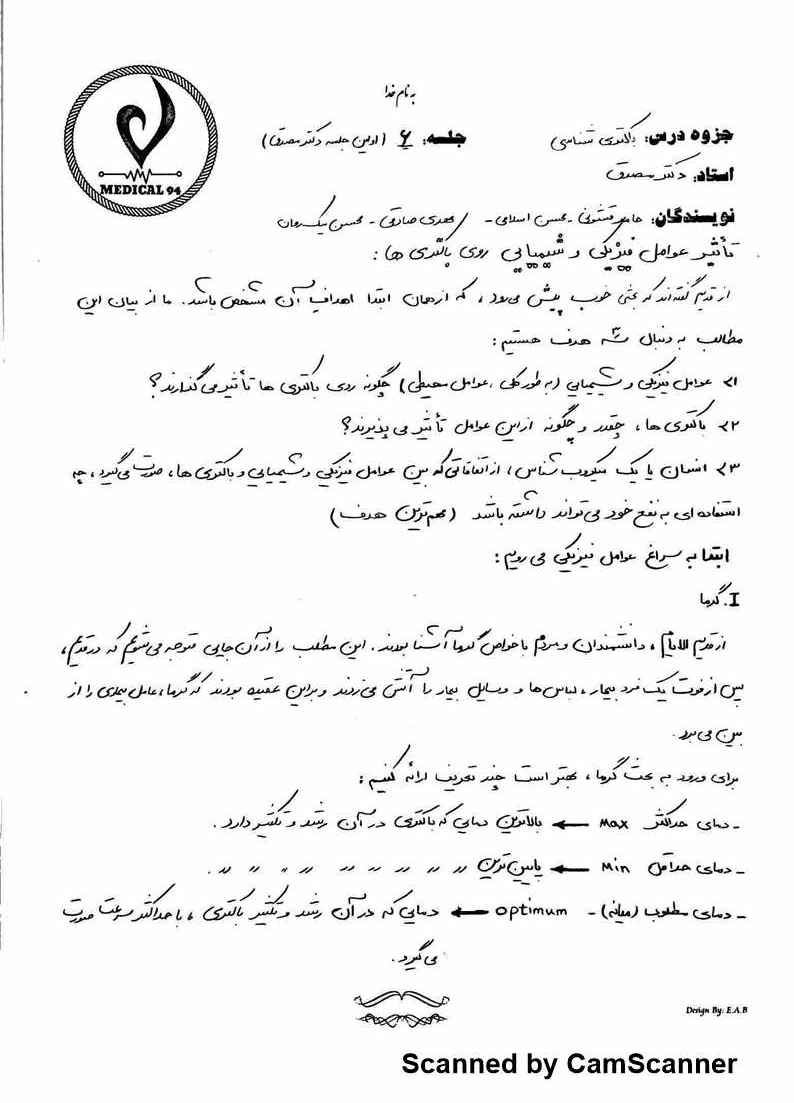 به نام خدا
MEDICAL 94
جزوه درس: باکتری شناسی
جلسه: 6 (اولین جلسه دکتر مصدق)
استاد: دکتر مصدق
نویسندگان: - محسن اسلامی - مهدی صادقی - محسن
تأثیر عوامل فیزیکی و شیمیایی روی باکتری ها:
از قدیم گفته اند که بحثی خوب پیش می رود، که از همان ابتدا اهداف آن مشخص باشد. ما از بیان این
مطالب به دنبال ۳ هدف هستیم:
۱> عوامل فیزیکی و شیمیایی (به طور کلی، عوامل محیطی) چگونه روی باکتری ها تأثیر می گذارند؟
۲> باکتری ها، چقدر و چگونه از این عوامل تأثیر می پذیرند؟
۳> انسان یا یک میکروب شناس، از اتفاقاتی که بین عوامل فیزیکی و شیمیایی و باکتری ها، صورت می گیرد، چه
استفاده ای به نفع خود می تواند داشته باشد (مهم ترین هدف)
ابتدا به سراغ عوامل فیزیکی می رویم:
I. گرما
از قدیم الایام، دانشمندان و مردم با خواص گرما آشنا بودند. این مطلب را از آن جایی متوجه می شویم که در قدیم،
پس از فوت یک فرد بیمار، لباس ها و وسایل بیمار را آتش می زدند و براین عقیده بودند که گرما، عامل بیماری را از
بین می برد.
برای ورود به بحث گرما، بهتر است چند تعریف ارائه کنیم:
- دمای حداکثر Max ← بالاترین دمایی که باکتری در آن رشد و تکثیر دارد.
- دمای حداقل Min ← پایین ترین 〃 〃 〃 〃 〃 〃 〃 〃 〃.
- دمای مطلوب (میانه) - optimum ← دمایی که در آن رشد و تکثیر باکتری، با حداکثر سرعت صورت
می گیرد.
Design By: E.A.B
Scanned by CamScanner